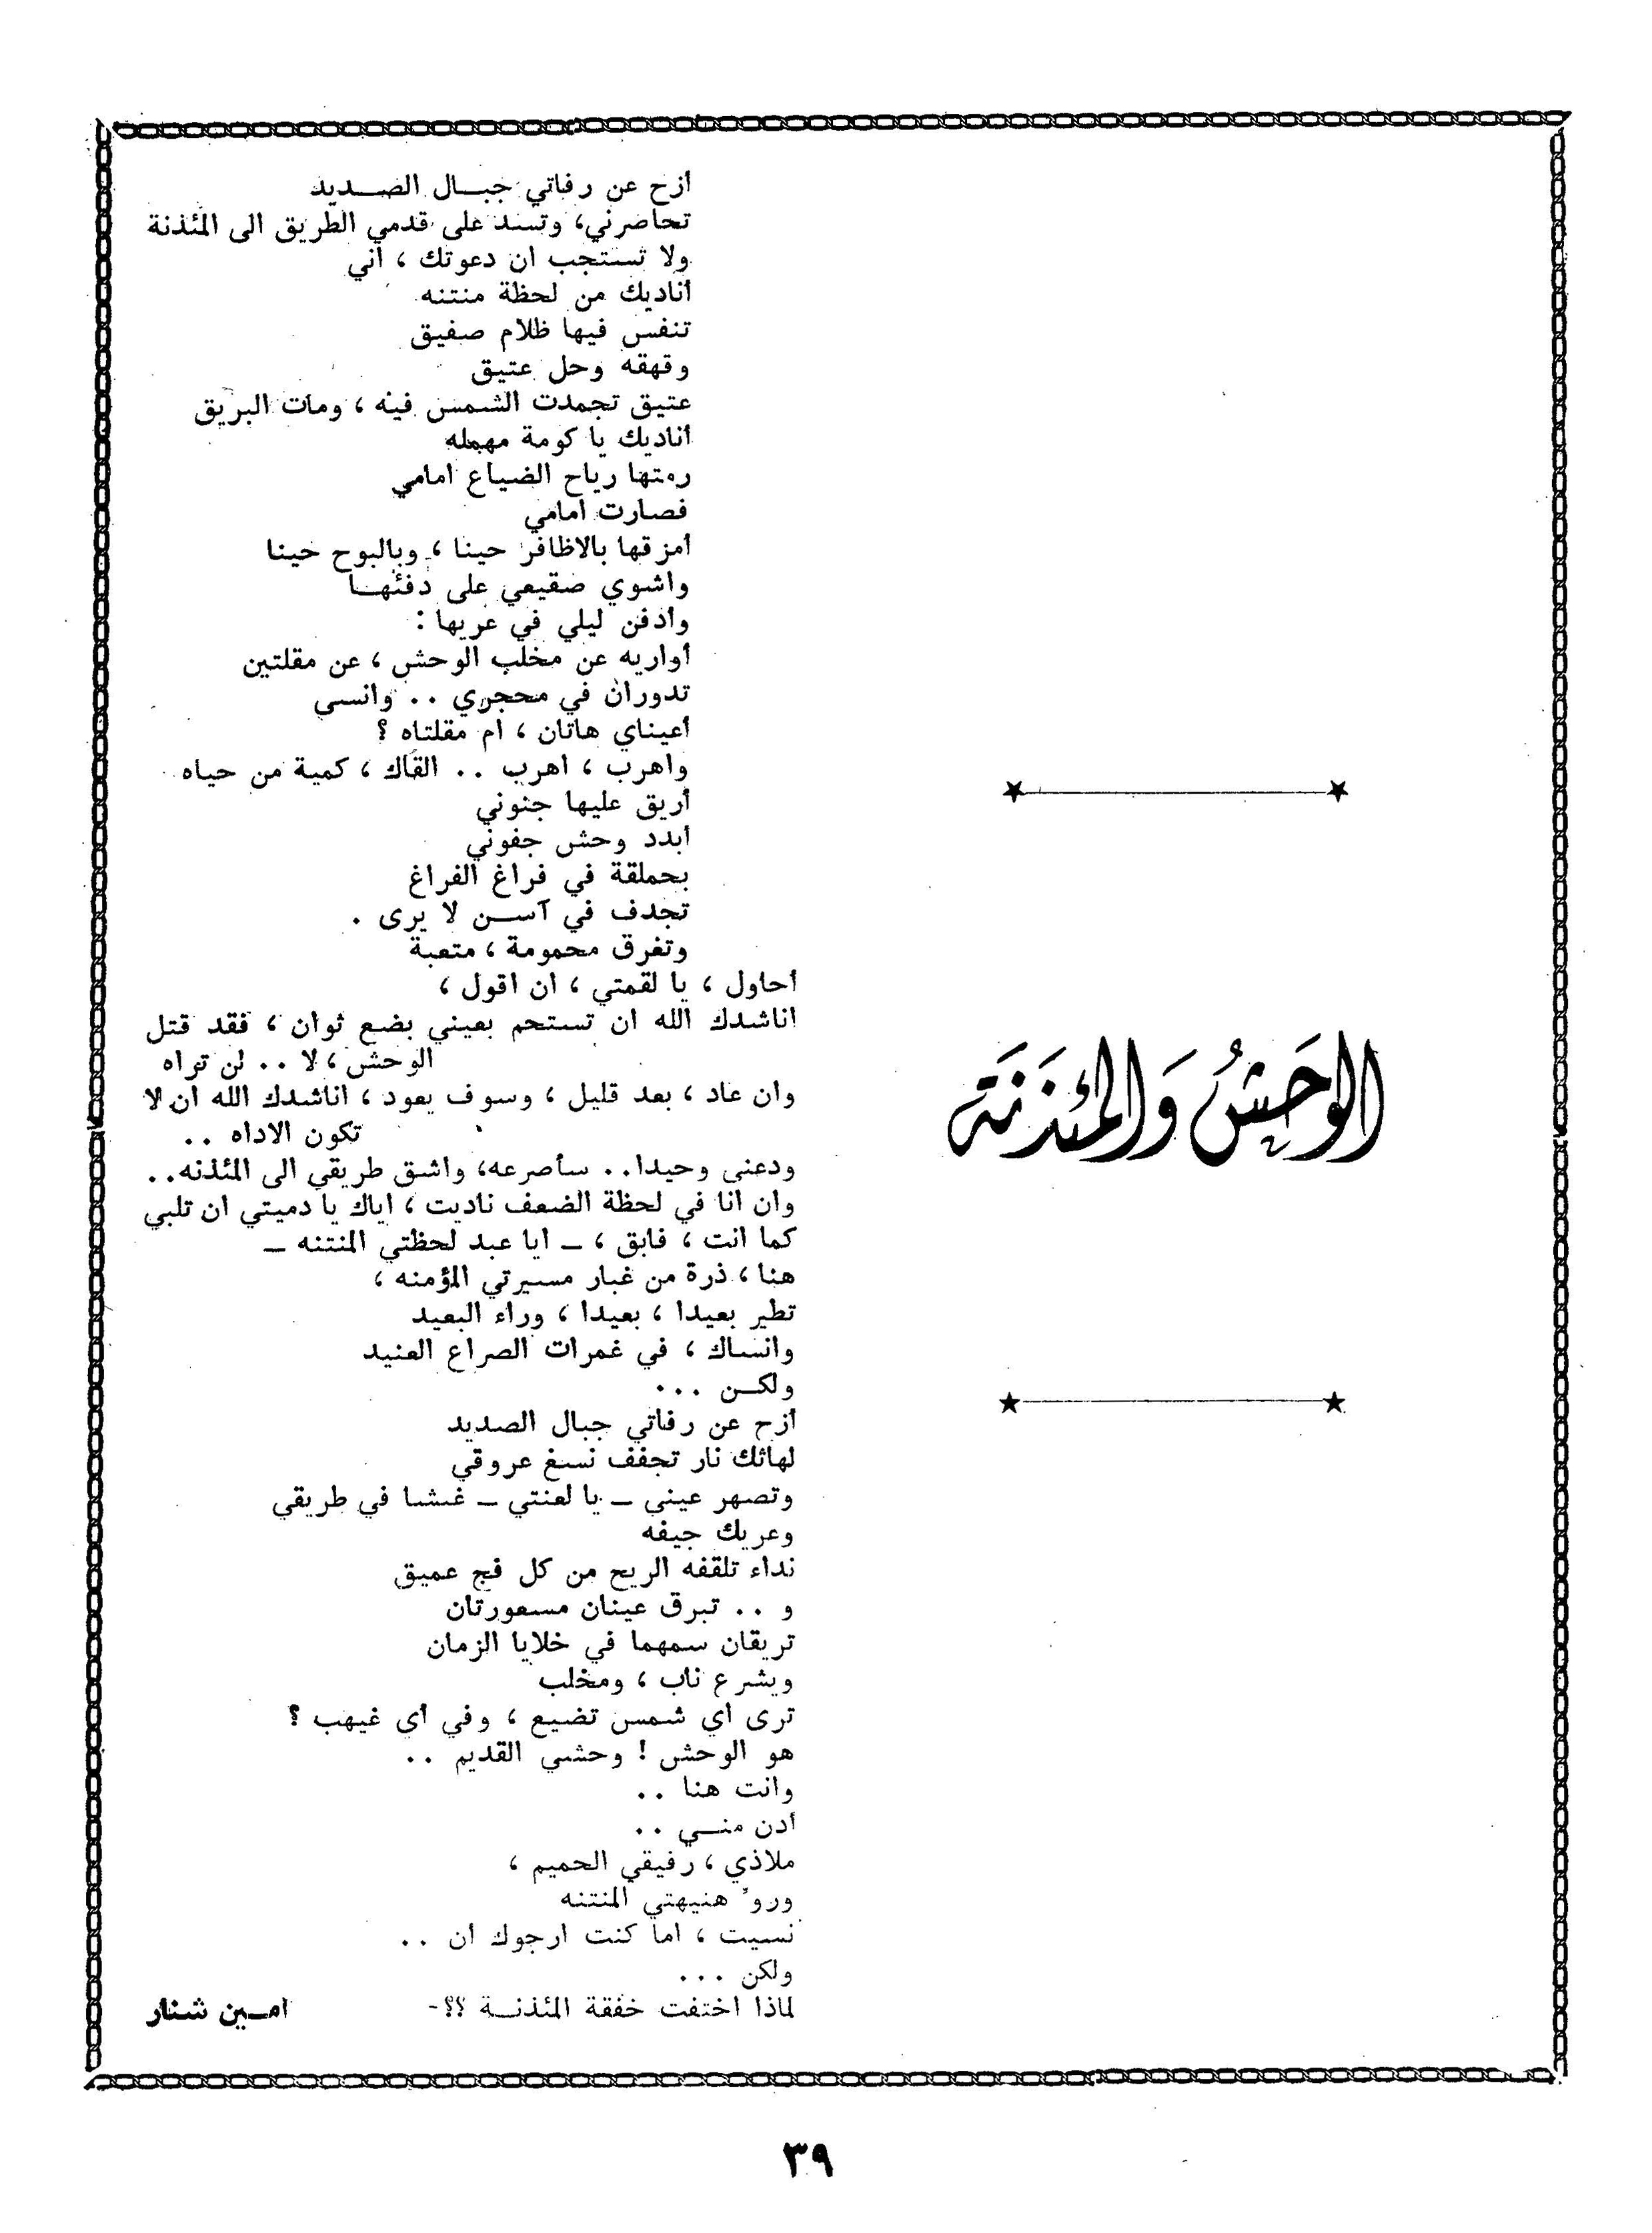 الوَحَشُ وَالمئذَنَة
أزح عن رفاتي جبـال الصـديد
تحاصرني، وتسد على قدمي الطريق الى المئذنة
ولا تستجب ان دعوتك ، اني
أناديك من لحظة منتنه
تنفس فيها ظلام صفيق
وقهقه وحل عتيق
عتيق تجمدت الشمس فيه ، ومات البريق
أناديك يا كومة مهمله
رمتها رياح الضياع امامي
فصارت امامي
أمزقها بالاظافر حينا ، وبالبوح حينا
واشوي صقيعي على دفئهـا
وأدفن ليلي في عريها :
أواريه عن مخلب الوحش ، عن مقلتين
تدوران في محجري .. وانسى
أعيناي هاتان ، ام مقلتاه ؟
واهرب ، اهرب .. القاك ، كمية من حياه
أريق عليها جنوني
أبدد وحش جفوني
بحملقة في فراغ الفراغ
تجدف في آسـن لا يرى .
وتغرق محمومة ، متعبة
أحاول ، يا لقمتي ، ان اقول ،
اناشدك الله ان تستحم بعيني بضع ثوان ، فقد قتل
الوحش ، لا .. لن تراه
وان عاد ، بعد قليل ، وسوف يعود ، اناشدك الله ان لا
تكون الاداه ..
ودعني وحيدا.. سأصرعه، واشق طريقي الى المئذنه..
وان انا في لحظة الضعف ناديت ، اياك يا دميتي ان تلبي
كما انت ، فابق ، ـ ايا عبد لحظتي المنتنه ـ
هنا ، ذرة من غبار مسيرتي المؤمنه ،
تطير بعيدا ، بعيدا ، وراء البعيد
وانساك ، في غمرات الصراع العنيد
ولكـن ...
أزح عن رفاتي جبال الصديد
لهاثك نار تجفف نسغ عروقي
وتصهر عيني ـ يا لعنتي ـ غبشا في طريقي
وعريك جيفه
نداء تلقفه الريح من كل فج عميق
و .. تبرق عينان مسعورتان
تريقان سمهما في خلايا الزمان
ويشرع ناب ، ومخلب
ترى أي شمس تضيع ، وفي أي غيهب ؟
هو الوحش ! وحشي القديم ..
وانت هنا ..
أدن منـي ..
ملاذي ، رفيقي الحميم ،
وروّ هنيهتي المنتنه
نسيت ، اما كنت ارجوك ان ..
ولكن ...
لماذا اختفت خفقة المئذنـة ؟؟-
امـين شنار
٣٩